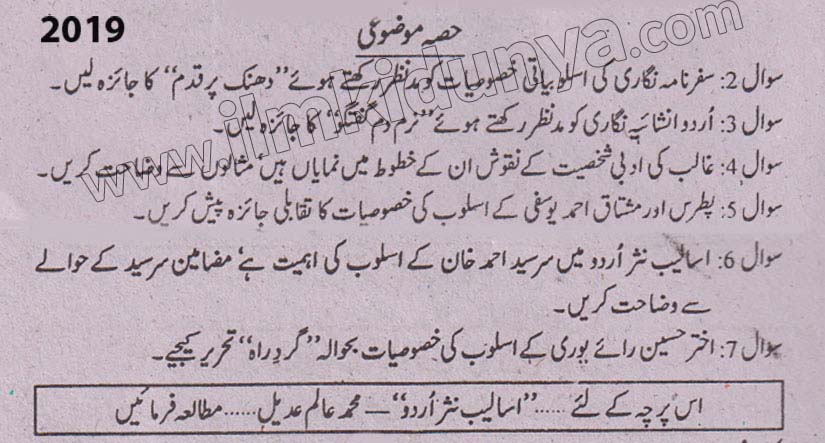 2019
حصہ موضوعی
سوال 2: سفرنامہ نگاری کی اسلوبیاتی خصوصیات کو مدنظر رکھتے ہوئے ”دھنک پر قدم“ کا جائزہ لیں۔
سوال 3: اُردو انشائیہ نگاری کو مدنظر رکھتے ہوئے ”نرم دم گفتگو“ کا جائزہ لیں۔
سوال 4: غالب کی ادبی شخصیت کے نقوش ان کے خطوط میں نمایاں ہیں‘ مثالوں سے وضاحت کریں۔
سوال 5: پطرس اور مشتاق احمد یوسفی کے اسلوب کی خصوصیات کا تقابلی جائزہ پیش کریں۔
سوال 6: اسالیب نثر اُردو میں سرسید احمد خان کے اسلوب کی اہمیت ہے‘ مضامین سرسید کے حوالے
سے وضاحت کریں۔
سوال 7: اختر حسین رائے پوری کے اسلوب کی خصوصیات بحوالہ ”گردِ راہ“ تحریر کیجیے۔
اس پرچہ کے لئے ...... ”اسالیب نثر اُردو“ — محمد عالم عدیل ...... مطالعہ فرمائیں
www.ilmkidunya.com